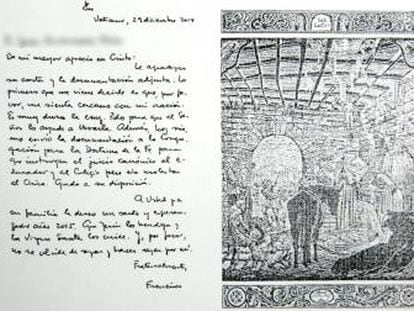 Vaticano, 29 diciembre 2014
De mi mayor aprecio en Cristo:
Le agradezco
su carta y la documentación adjunta. Lo
primero que me viene decirle es que, por
favor, me sienta cercano con mi oración.
Es muy dura la cruz. Pido para que el Se-
ñor los ayude a llevarla. Además, hoy mis-
mo envío la documentación a la Congre-
gación para la Doctrina de la Fe para
que instruyan el juicio canónico al e-
ducador y al Colegio pese sin molestar
al Chico. Quedo a su disposición.
A Usted y a
su familia le deseo un santo y
año 2015. Que Jesús los bendiga y
la Virgen Santa los cuide. Y, por favor,
no se olvide de rezar y hacer rezar por mí.
Fraternalmente,
Francisco